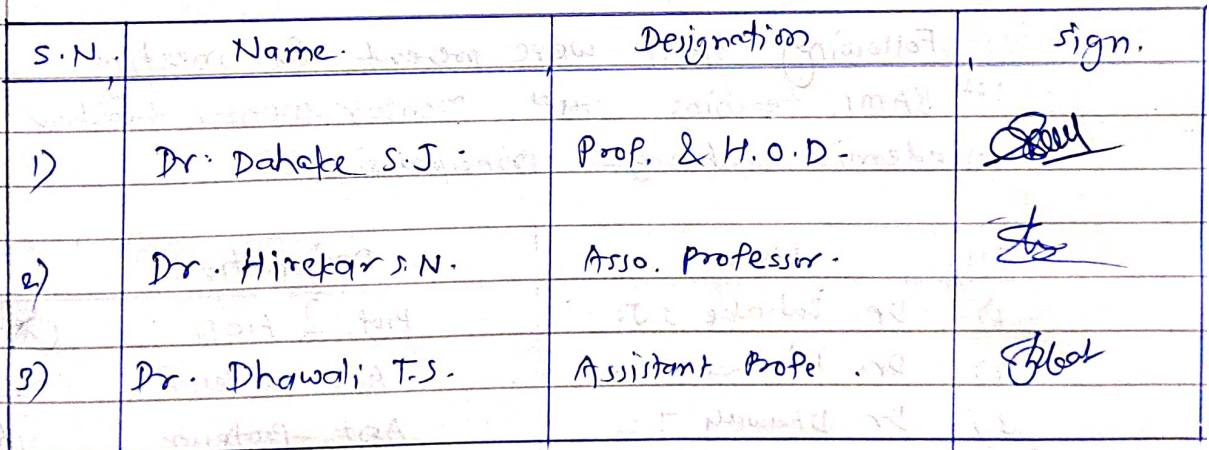 S.N. Name. Designation sign.
1) Dr. Dahake S.J. Prof. & H.O.D.
2) Dr. Hirekar S.N. Asso. Professor.
3) Dr. Dhawali T.S. Assistant Profe.